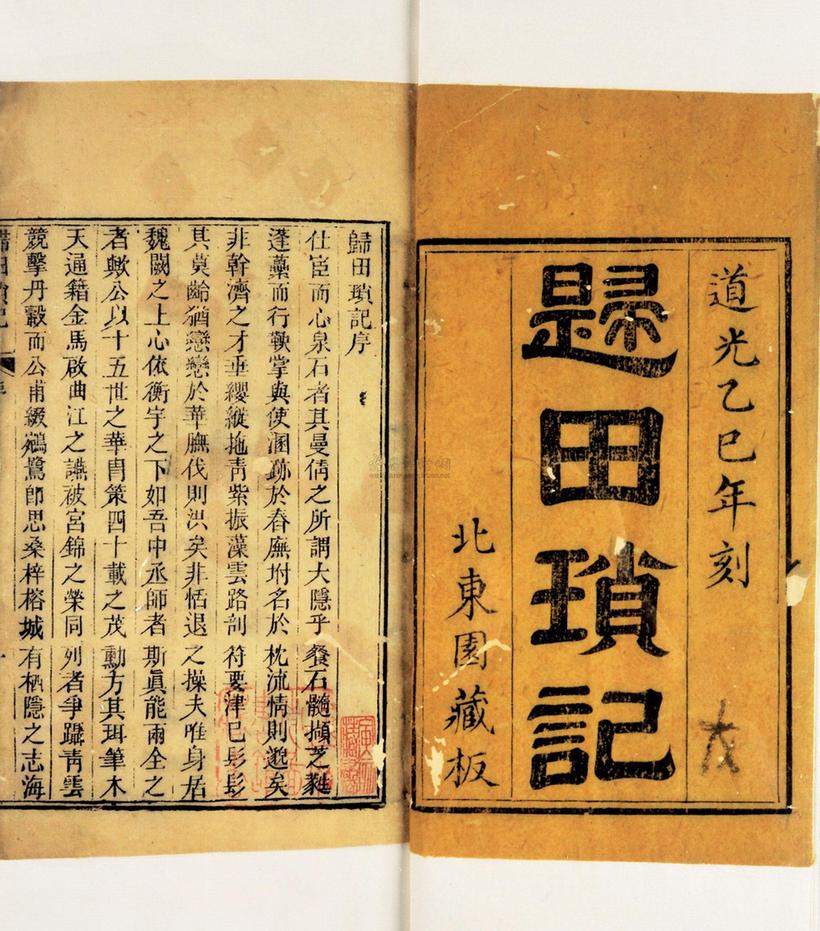 道光乙巳年刻
歸田瑣記
北東園藏板
歸田瑣記序
仕宦而心泉石者其曼倩之所謂大隱乎餐石髓擷芝蕤
蓬蔂而行鞅掌與使溷跡於舂廡坿名於枕流情則邈矣
非幹濟之才垂纓縰拖青紫振藻雲路剖符要津已髟髟
其莫齡猶戀戀於華膴伐則洪矣非恬退之操夫唯身居
魏闕之上心依衡宇之下如吾中丞師者斯眞能兩全之
者歟公以十五世之華胄策四十載之茂勳方其珥筆木
天通籍金馬啟曲江之讌被宮錦之榮同列者爭躡青雲
競擊丹轂而公甫綴鵷鷺卽思桑梓榕城有栖隱之志海